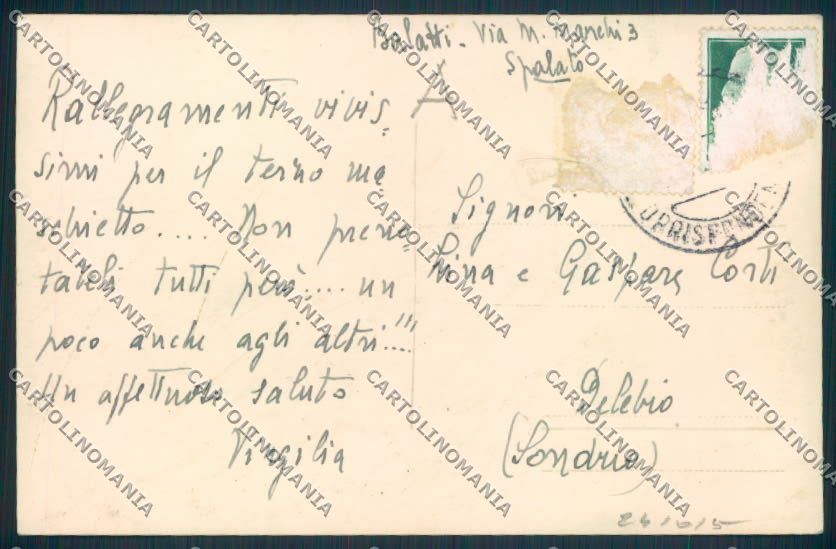 Bolatti - Via M. Marchi 3
Spalato
Rallegramenti vivis-
simi per il terzo ma
schietto..... Non preno
tateli tutti però.... un
poco anche agli altri!!!....
Un affettuoso saluto
Virgilia
Signori
Lina e Gaspare Corti
Delebio
(Sondrio)
CORRISPONDEN
241015
CARTOLINOMANIA